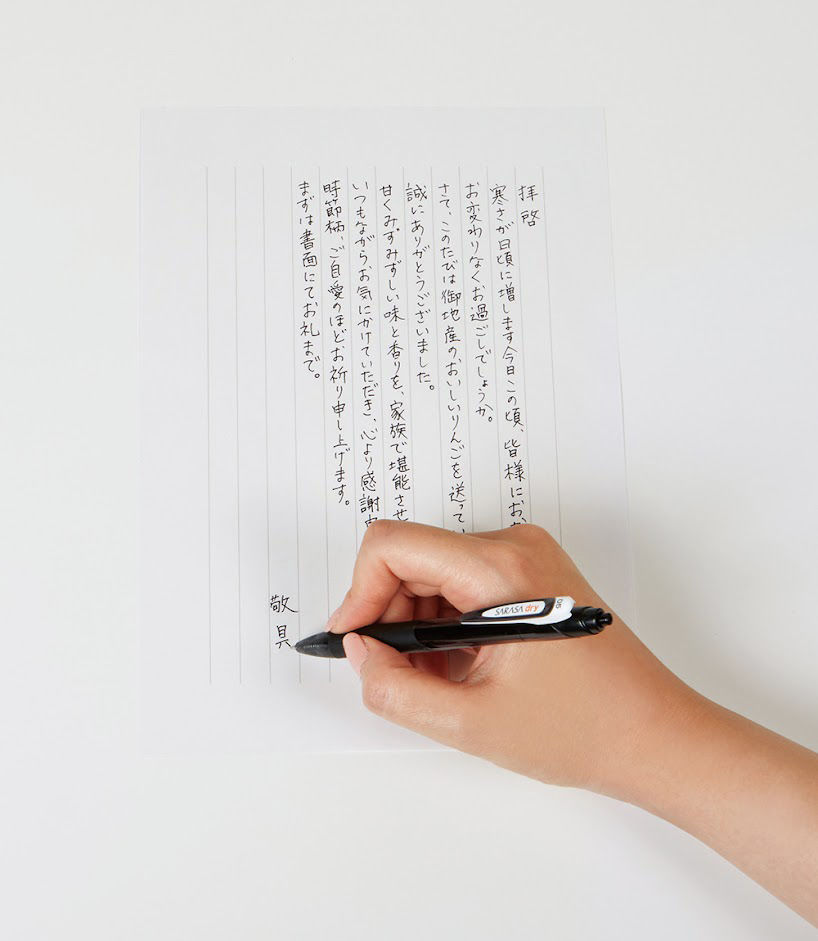 拝啓
寒さが日頃に増します今日この頃、皆様にお
お変わりなくお過ごしでしょうか。
さて、このたびは御地産のおいしいりんごを送ってい
誠にありがとうございました。
甘くみずみずしい味と香りを、家族で堪能させ
いつもながらお気にかけていただき、心より感謝
時節柄、ご自愛のほどお祈り申し上げます。
まずは書面にてお礼まで。
敬具
SARASA dry
0.5